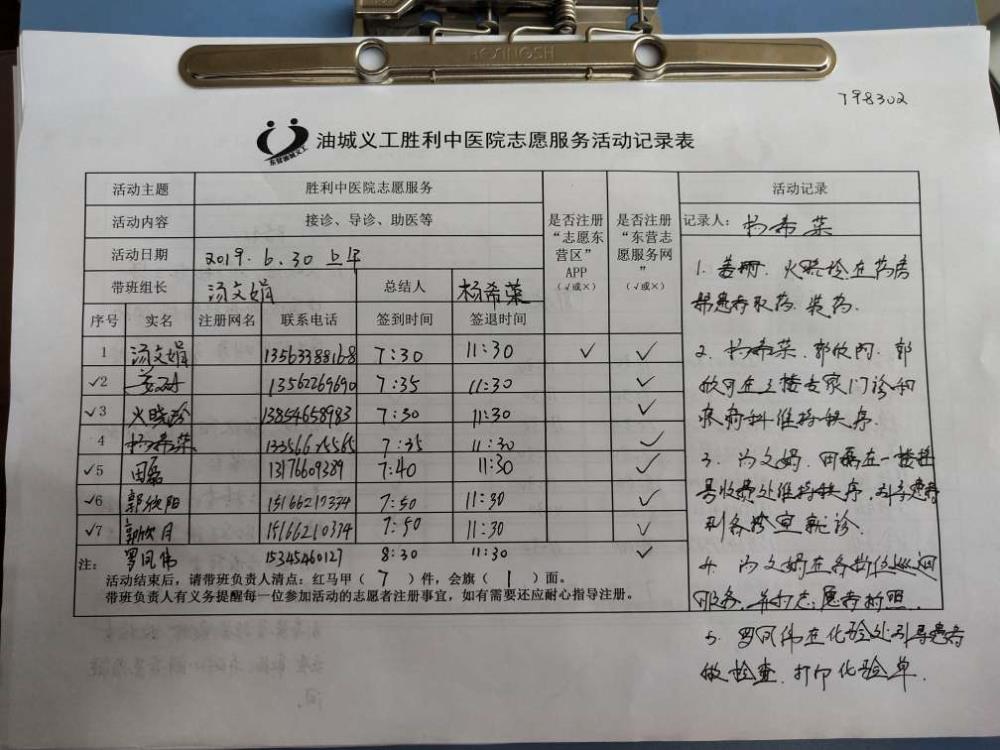 HONGNSH
798302
油城义工胜利中医院志愿服务活动记录表
东营油城义工
活动主题 胜利中医院志愿服务
活动内容 接诊、导诊、助医等
活动日期 2019.6.30 上午
带班组长 汤文娟 总结人 杨希荣
是否注册“志愿东营区”APP（√或×）
是否注册“东营志愿服务网”（√或×）
序号 实名 注册网名 联系电话 签到时间 签退时间
1 汤文娟 13563388168 7:30 11:30 √ √
√2 13562269690 7:35 11:30 √
√3 火晓玲 13854658983 7:30 11:30 √
4 杨希荣 13356615565 7:35 11:30 √
√5 田磊 13176609389 7:40 11:30 √
√6 郭欣阳 15166217374 7:50 11:30 √
√7 郭欣月 15166210374 7:50 11:30 √
罗凤伟 15345460127 8:30 11:30 √
注：
活动结束后，请带班负责人清点：红马甲（ 7 ）件，会旗（ 1 ）面。
带班负责人有义务提醒每一位参加活动的志愿者注册事宜，如有需要还应耐心指导注册。
活动记录
记录人：杨希荣
1. 火晓玲在药房
帮患者取药、装药.
2. 杨希荣、郭欣阳、郭
欣月在三楼专家门诊和
疼痛科维持秩序.
3. 汤文娟、田磊在一楼挂
号收费处维持秩序、引导患者
到各诊室就诊.
4. 汤文娟在各岗位巡迴
服务，并为志愿者拍照.
5. 罗凤伟在化验处引导患者
做检查、打印化验单.